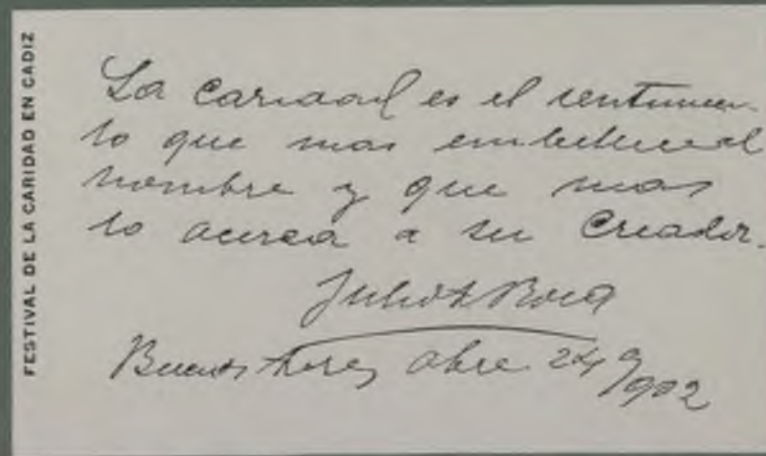 FESTIVAL DE LA CARIDAD EN CADIZ
La caridad es el sentimien-
to que mas embellece al
hombre y que mas
lo acerca a su Creador.
Julio A Roca
Buenos Aires, 24 902